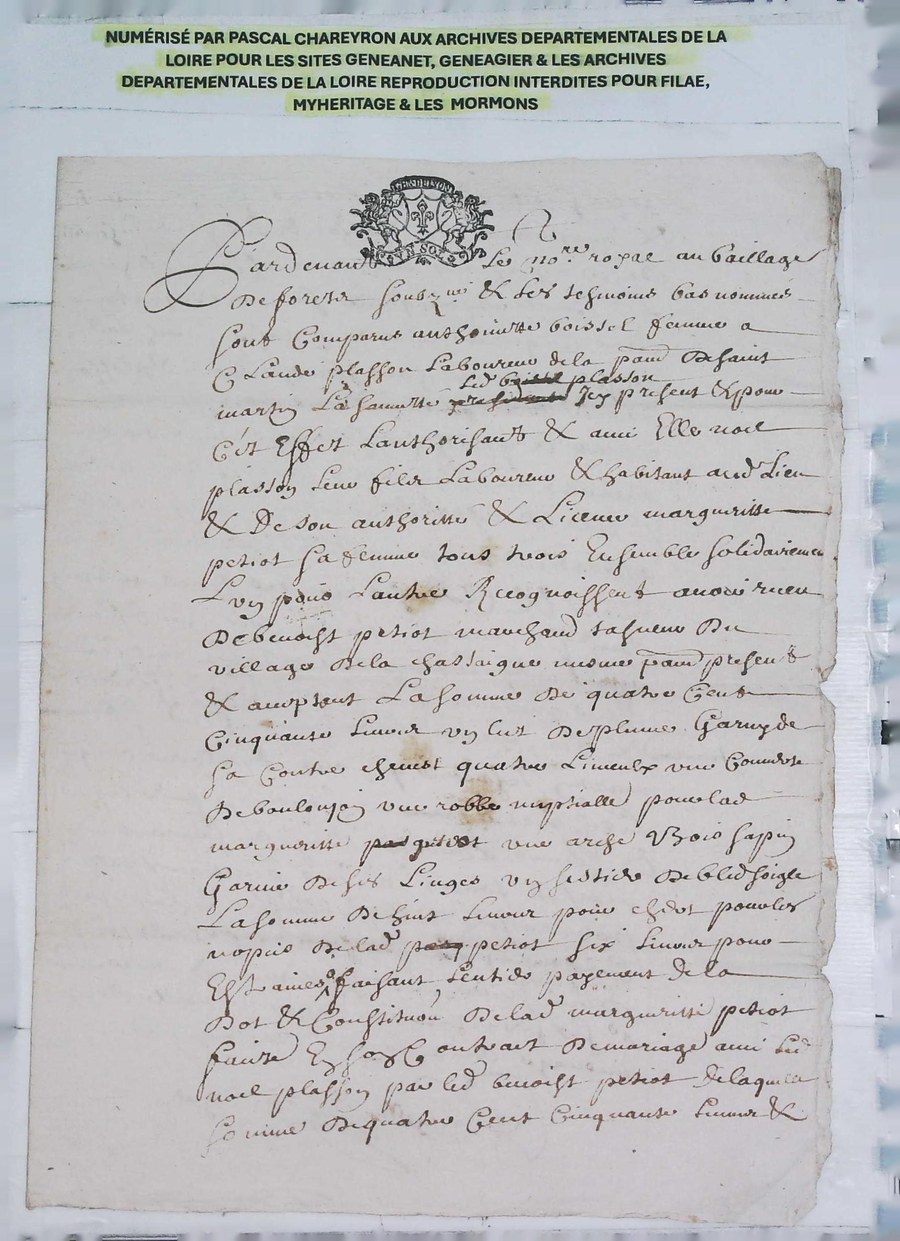 NUMÉRISÉ PAR PASCAL CHAREYRON AUX ARCHIVES DEPARTEMENTALES DE LA
LOIRE POUR LES SITES GENEANET, GENEAGIER & LES ARCHIVES
DEPARTEMENTALES DE LA LOIRE REPRODUCTION INTERDITES POUR FILAE,
MYHERITAGE & LES MORMONS
GEN DE LYON
UN SOL
Pardevant Le no.re royal au bailliage
De forestz soubz.né & Les tesmoins bas nommés
sont Comparus anthoinette boissel femme a
Claude plasson Laboureur dela parr Desaint
Led plasson
martin La sauvette Icy present & pour
Cet Effet Lauthorisant & avec Elle noel
plasson Leur filz Laboureur & habitant aud Lieu
& De son authoritté & Licence margueritte
petiot sa femme tous trois Ensemble solidairement
L'un pour L'autre Recognoissent avoir receu
De benoist petiot marchand Du
village Dela chassaigne mesme parr present
& acceptant La somme De quatre Cent
Cinquante Livres un lict De plume Garny de
sa Couttre chevet quatre Linceulx une Couverte
De une robbe nuptialle pour lad
margueritte une arche Bois sapin
Garnie De ses Linges un sestier De bled soigle
La somme De huit Livres pour pour les
nopces De lad petiot six Livres pour
Estraines faisant L'entier payement de la
Dot & Constituón De lad margueritte petiot
faitte En son Contrait De mariage avec Led
noel plasson par led benoist petiot De laquelle
somme De quatre Cent Cinquante Livres &